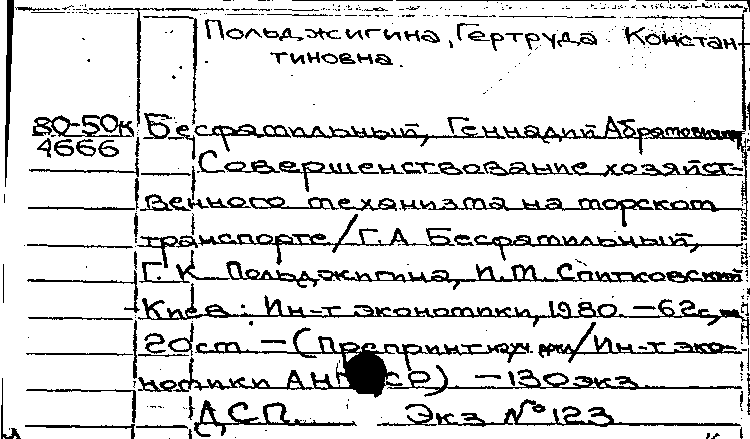 Польджигина, Гертруда Констан-
тиновна.
80-50к Бесфамильный, Геннадий Абрамович
4666
Совершенствование хозяйст-
венного механизма на морском
транспорте/Г.А Бесфамильный,
Г. К Польджигина, И.М. Спитковский
Киев: Ин-т экономики, 1980. -62с,
20см. -(Препринт науч. докл/Ин-т эко-
номики АН СР). -130экз
ДСП. Экз №123